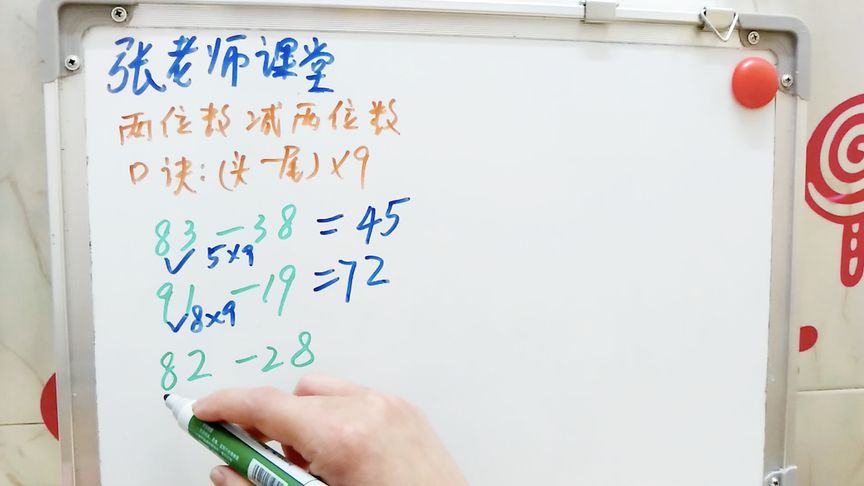 张老师课堂
两位数减两位数
口诀:(头-尾)×9
83-38=45
5×9
91-19=72
8×9
82-28